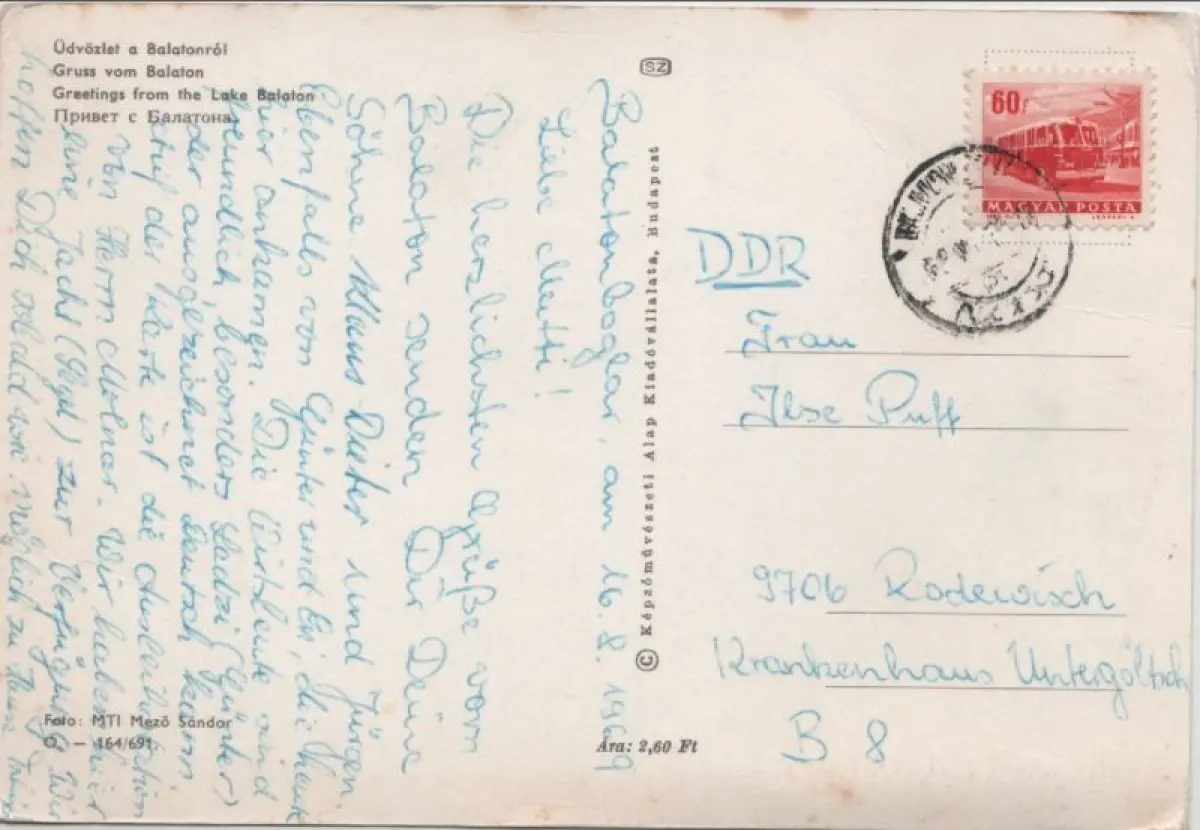 Üdvözlet a Balatonról
Gruss vom Balaton
Greetings from the Lake Balaton
Привет с Балатона
Balatonboglar, am 16.8.1969
Liebe Mutti!
Die herzlichsten Grüße vom
Balaton senden Dir Deine
Söhne Klaus Dieter und Jürgen.
Ebenfalls von Günter und die heute
hier ankamen. Die Wirtsleute sind
freundlich, besonders Ladzi (Günter)
der ausgezeichnet Deutsch kann.
Auf der Karte ist die
von Herrn Molnar. Wir haben hier
eine Jacht (Segel) zur Verfügung. Wir
hoffen Dich sobald wie möglich zu
Foto: MTI Mező Sándor
O. — 164/691
SZ
© Képzőművészeti Alap Kiadóvállalata, Budapest
Ára: 2,60 Ft
60f
MAGYAR POSTA
DDR
Frau
Ilse Puff
9706 Rodewisch
Krankenhaus Untergöltsch
B 8